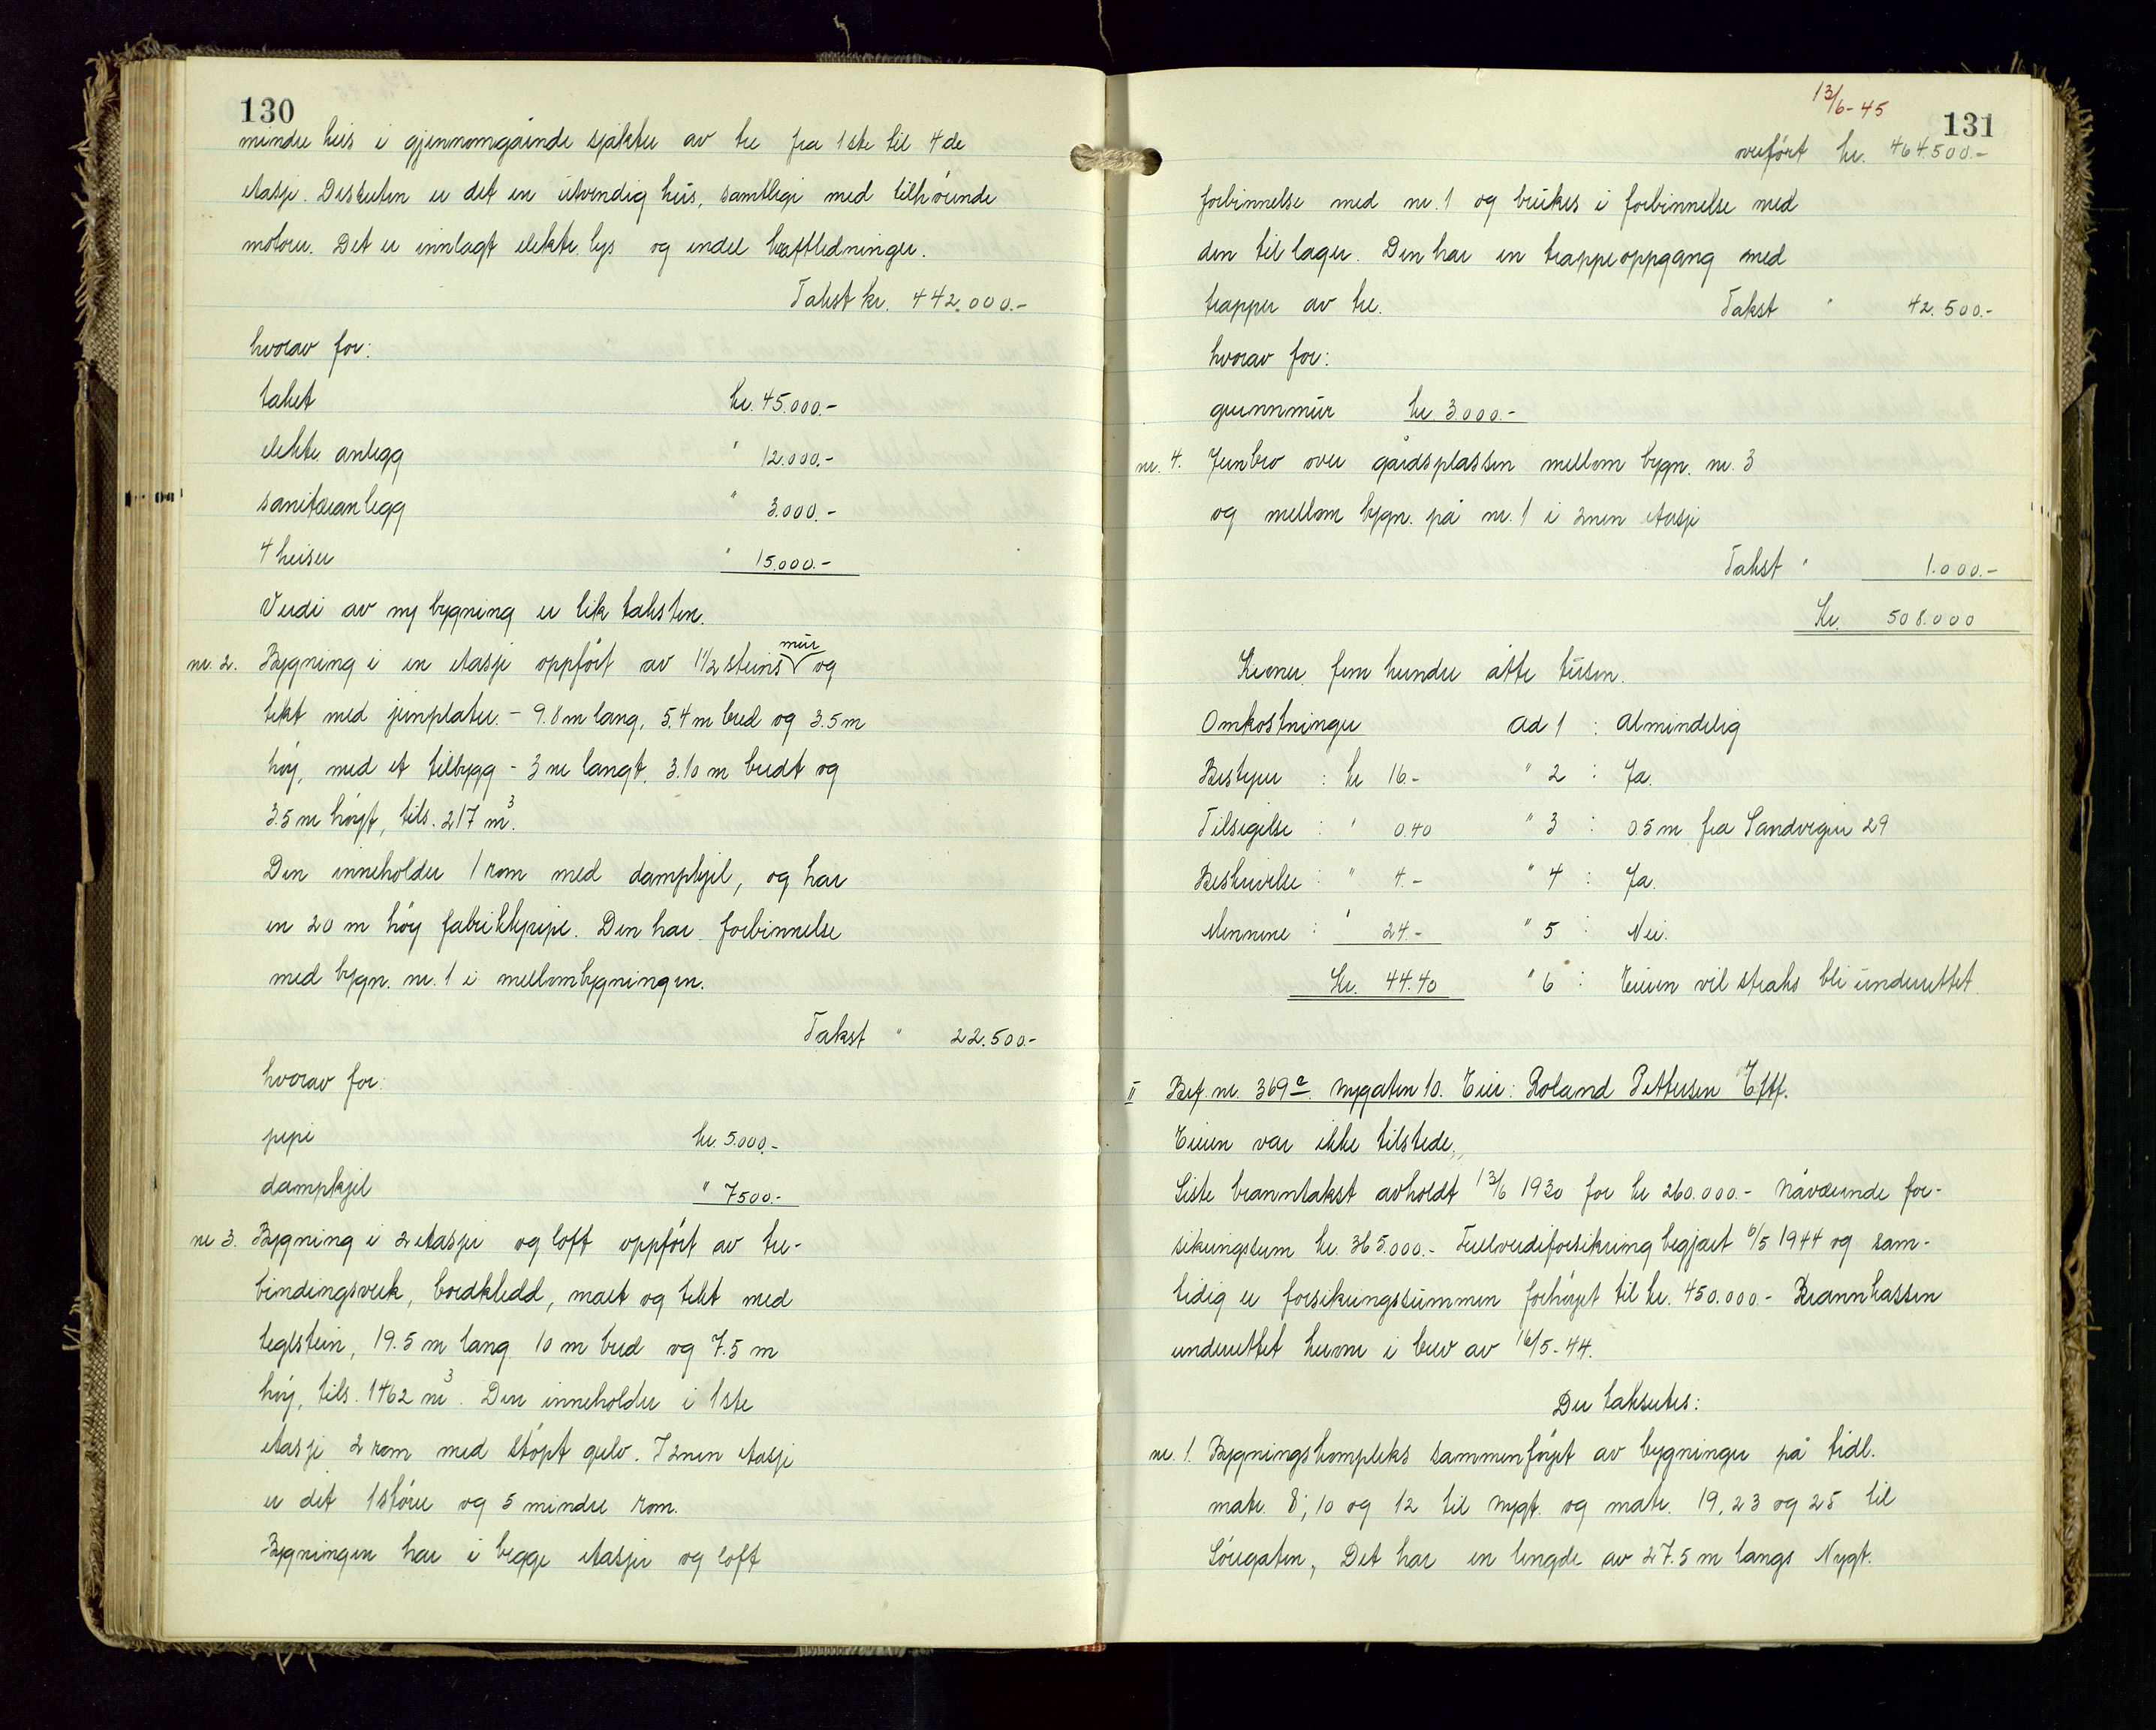 130
mindre heis i gjennomgående sjakter av tre fra 1ste til 4de
etasje. Desuten er det en utvendig heis, samtlige med tilhørende
motorer. Det er innlagt elektr. lys og endel kraftledninger.
Takst kr. 442.000.-
hvorav for:
taket kr. 45.000.-
elektr. anlegg " 12.000.-
sanitæranlegg " 3.000.-
4 heiser " 15.000.-
Verdi av ny bygning er lik taksten.
nr. 2. Bygning i en etasje oppført av 1 1/2 steins mur og
tekt med jernplater. - 9.8 m lang, 5.4 m bred og 3.5 m
høy, med et tilbygg - 3 m langt, 3.10 m bredt og
3.5 m høyt, tils. 217 m³.
Den inneholder 1 rom med dampkjel, og har
en 20 m høy fabrikkpipe. Den har forbinnelse
med bygn. nr. 1 i mellombygningen.
Takst " 22.500.-
hvorav for:
pipe kr. 5.000.-
dampkjel " 7500.-
nr 3. Bygning i 2 etasjer og loft oppført av tre-
bindingsverk, bordkledd, malt og tekt med
teglstein, 19.5 m lang 10 m bred og 7.5 m
høy, tils. 1462 m³. Den inneholder i 1ste
etasje 2 rom med støpt gulv. I 2nen etasje
er det 1 større og 5 mindre rom.
Bygningen har i begge etasjer og loft
13/6-45
131
overført kr. 464.500.-
forbinnelse med nr. 1 og brukes i forbinnelse med
den til lager. Den har en trappeoppgang med
trapper av tre. Takst " 42.500.-
hvorav for:
grunnmur kr. 3.000.-
nr. 4. Jernbro over gårdsplassen mellom bygn. nr. 3
og mellom bygn. på nr. 1 i 2nen etasje
Takst " 1.000.-
Kr. 508.000
Kroner fem hundre åtte tusen.
Omkostninger ad 1 : Almindelig
Bestyrer : kr 16.- " 2 : Ja.
Tilsigelse : " 0.40 " 3 : 0.5 m fra Sandvigen 29
Beskrivelse : " 4.- " 4 : Ja.
Mennene : " 24.- " 5 : Nei.
Kr. 44.40 " 6 : Eieren vil straks bli underrettet.
II Bef. nr. 369 e. Nygaten 10. Eier: Roland Pettersen Eftf.
Eieren var ikke tilstede.
Siste branntakst avholdt 13/6 1930 for kr 260.000.- Nåværende for-
sikringssum kr. 365.000.- Fullverdiforsikring begjært 6/5 1944 og sam-
tidig er forsikringssummen forhøyet til kr. 450.000.- Brannkassen
underrettet herom i brev av 16/5-44.
Der takseres:
nr. 1. Bygningskompleks sammenføyet av bygninger på tidl.
matr. 8, 10 og 12 til Nygt. og matr. 19, 23 og 25 til
Søregaten, Det har en lengde av 27.5 m langs Nygt.